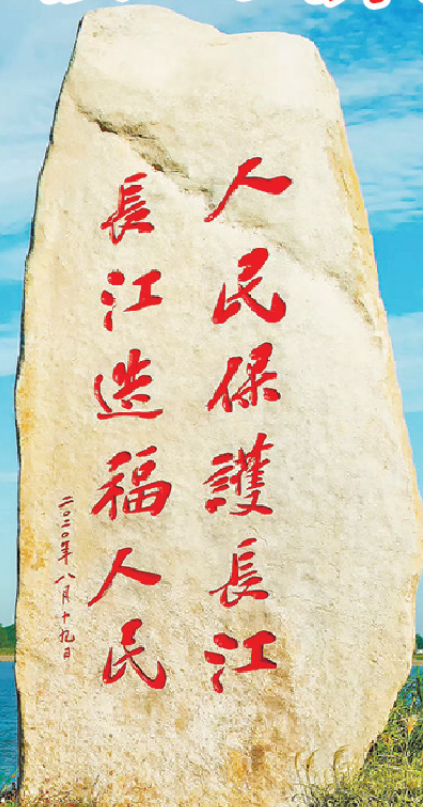 人民保護長江
長江造福人民
二〇二〇年八月十九日